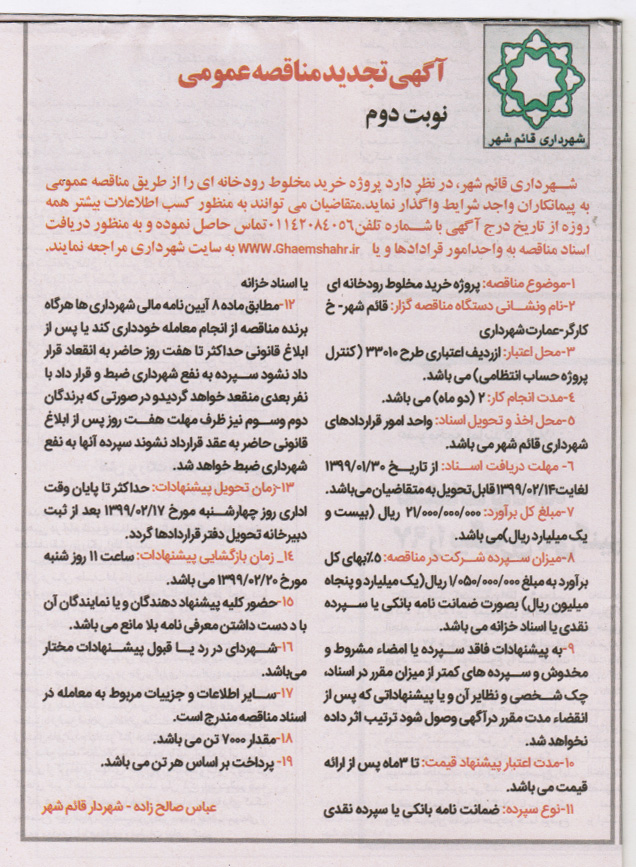 شهرداری قائم شهر
آگهی تجدید مناقصه عمومی
نوبت دوم
شـهرداری قائم شهر، در نظر دارد پروژه خرید مخلوط رودخانه ای را از طریق مناقصه عمومی
به پیمانکاران واجد شرایط واگذار نماید.متقاضیان می توانند به منظور کسب اطلاعات بیشتر همه
روزه از تاریخ درج آگهی با شـماره تلفن۰۱۱۴۲۰۸۴۰۵۶تماس حاصل نموده و به منظور دریافت
اسناد مناقصه به واحدامور قرادادها و یا WWW.Ghaemshahr.ir به سایت شهرداری مراجعه نمایند.
۱-موضوع مناقصه: پروژه خرید مخلوط رودخانه ای
۲-نام ونشـانی دستگاه مناقصه گزار: قائم شهر- خ
کارگر-عمارت شهرداری
۳-محل اعتبار: ازردیف اعتباری طرح ۳۳۰۱۰ (کنترل
پروژه حساب انتظامی) می باشد.
۴-مدت انجام کار: ۲ (دو ماه) می باشد.
۵-محل اخذ و تحویل اسناد: واحد امور قراردادهای
شهرداری قائم شهر می باشد.
۶- مهلت دریافت اسـناد: از تاریـخ ۱۳۹۹/۰۱/۳۰
لغایت۱۳۹۹/۰۲/۱۴ قابل تحویل به متقاضیان می‌باشد.
۷-مبلغ کل برآورد: ۲۱/۰۰۰/۰۰۰/۰۰۰ ریال (بیست و
یک میلیارد ریال)می باشد.
۸-میزان سـپرده شـرکت در مناقصه: ۵٪بهای کل
برآورد به مبلغ ۱/۰۵۰/۰۰۰/۰۰۰ ریال(یک میلیارد و پنجاه
میلیون ریال) بصورت ضمانت نامه بانکی یا سـپرده
نقدی یا اسناد خزانه می باشد.
۹-به پیشنهادات فاقد سـپرده یا امضاء مشروط و
مخدوش و سـپرده های کمتر از میزان مقرر در اسناد،
چک شـخصی و نظایر آن و یا پیشنهاداتی که پس از
انقضاء مدت مقرر درآگهی وصول شود ترتیب اثر داده
نخواهد شد.
۱۰-مدت اعتبار پیشنهاد قیمت: تا ۳ماه پس از ارائه
قیمت می باشد.
۱۱-نوع سپرده: ضمانت نامه بانکی یا سپرده نقدی
یا اسناد خزانه
۱۲-مطابق ماده ۸ آیین نامه مالی شهرداری ها هرگاه
برنده مناقصه از انجام معامله خودداری کند یا پس از
ابلاغ قانونی حداکثر تا هفت روز حاضر به انقعاد قرار
داد نشود سـپرده به نفع شهرداری ضبط و قرار داد با
نفر بعدی منقعد خواهد گردیدو در صورتی که برندگان
دوم وسـوم نیز ظرف مهلت هفـت روز پس از ابلاغ
قانونی حاضر به عقد قرارداد نشوند سپرده آنها به نفع
شهرداری ضبط خواهد شد.
۱۳-زمان تحویل پیشنهادات: حداکثر تا پایان وقت
اداری روز چهارشـنبه مورخ ۱۳۹۹/۰۲/۱۷ بعد از ثبت
دبیرخانه تحویل دفتر قراردادها گردد.
۱۴_ زمان بازگشایی پیشنهادات: ساعت ۱۱ روز شنبه
مورخ ۱۳۹۹/۰۲/۲۰ می باشد.
۱۵-حضور کلیه پیشنهاد دهندگان و یا نمایندگان آن
با د دست داشتن معرفی نامه بلا مانع می باشد.
۱۶-شـهردای در رد یـا قبول پیشـنهادات مختار
می‌باشد.
۱۷-سـایر اطلاعات و جزییات مربوط به معامله در
اسناد مناقصه مندرج است.
۱۸-مقدار ۷۰۰۰ تن می باشد.
۱۹- پرداخت بر اساس هر تن می باشد.
عباس صالح زاده - شهردار قائم شهر